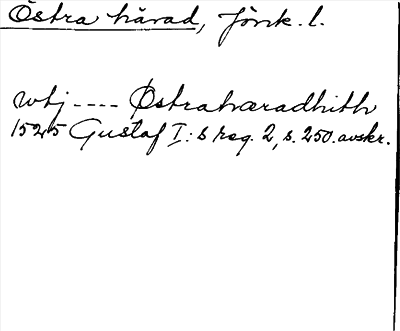 Östra härad, Jönk. l.
utj ---- Østrahæradhith
1525 Gustaf I:s reg. 2, s. 250. avskr.